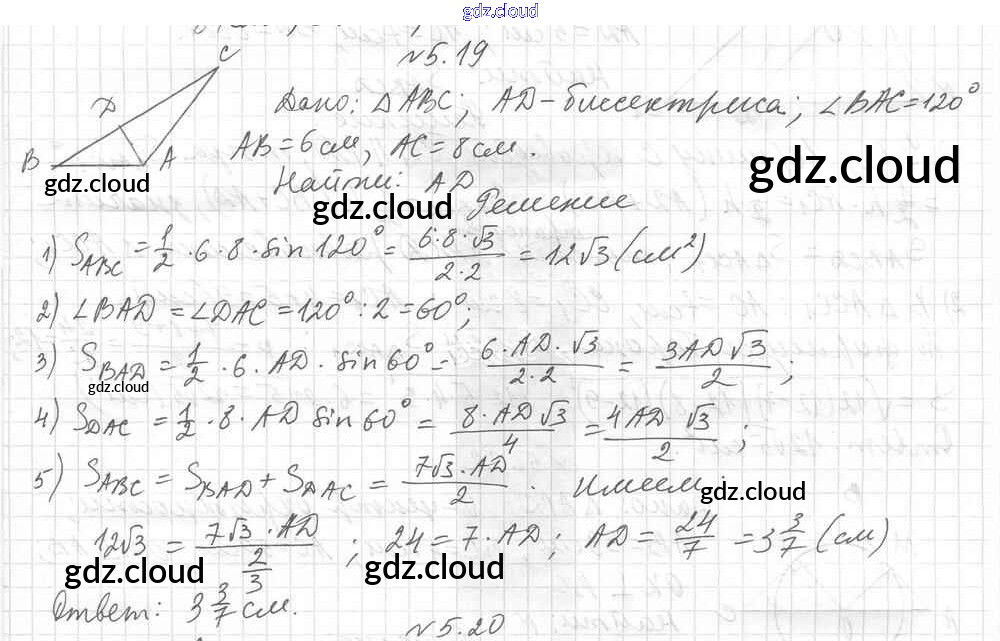 gdz.cloud
№5.19
C
D
B A
Дано: △ABC; AD-биссектриса; ∠BAC=120°
AB=6см, AC=8см.
gdz.cloud
gdz.cloud
Найти: AD
gdz.cloud
Решение
1) S_ABC = 1/2 · 6 · 8 · sin 120° = (6·8·√3)/(2·2) = 12√3 (см²)
2) ∠BAD = ∠DAC = 120° : 2 = 60°;
3) S_BAD = 1/2 · 6 · AD · sin 60° = (6·AD·√3)/(2·2) = (3AD√3)/2;
gdz.cloud
4) S_DAC = 1/2 · 8 · AD sin 60° = (8·AD√3)/4 = (4AD √3)/2;
5) S_ABC = S_BAD + S_DAC = (7√3·AD)/2. Имеем:
gdz.cloud
12√3 = (7√3·AD)/2; 24 = 7·AD; AD = 24/7 = 3 3/7 (см)
3
gdz.cloud
gdz.cloud
Ответ: 3 3/7 см.
№5.20